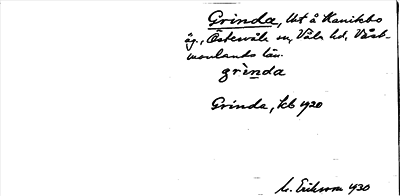 Grinda, Ut å Kanikbo
äg., Östervåla sn, Våla hd, Väst-
manlands län.
grìnda
Grinda, kb 1920
Eriksson 1930